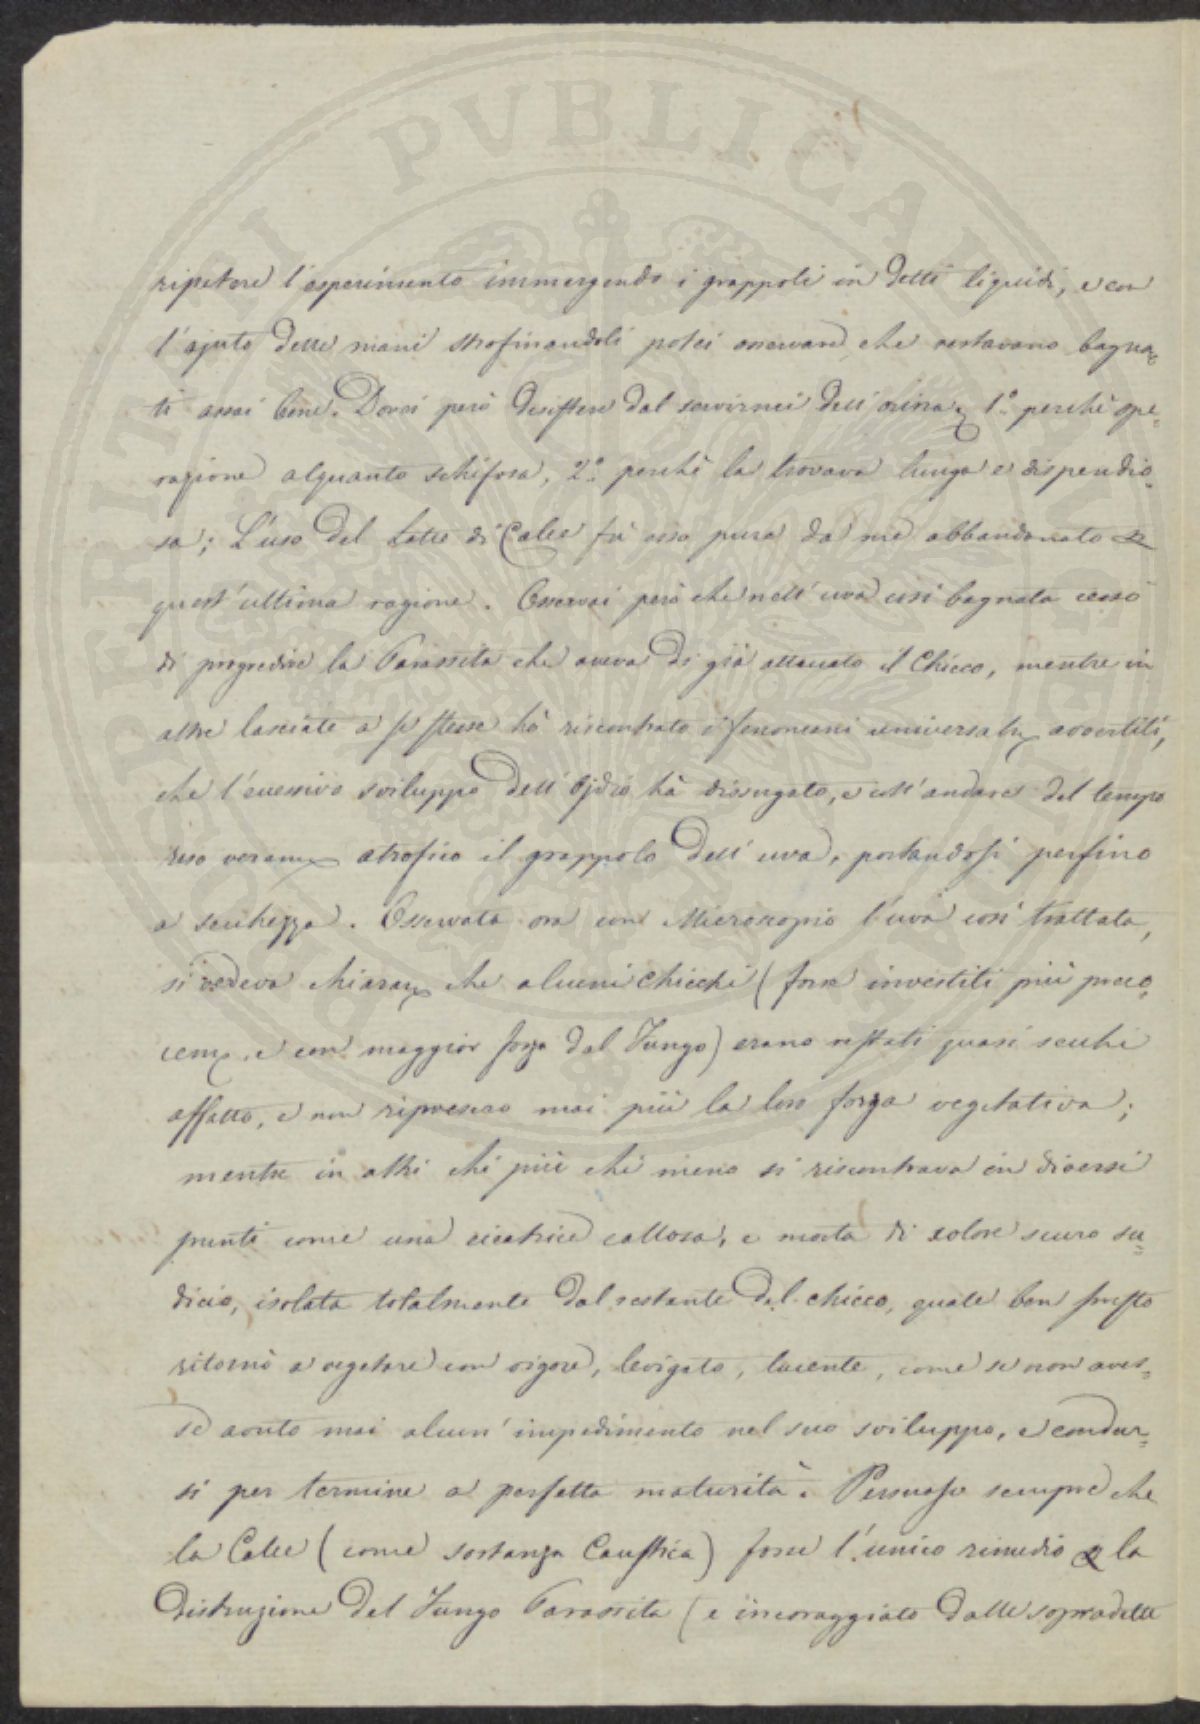 ripetere l'esperimento immergendo i grappoli in detti liquidi, e con
l'ajuto delle mani strofinandoli potei osservare che restavano bagna=
ti assai bene. Dovei però desistere dal servirmi dell'orina, 1.° perchè ope=
razione alquanto schifosa, 2.° perchè la trovava lunga e dispendio=
sa; L'uso del Latte di Calce fù esso pure da me abbandonato
quest'ultima ragione. Osservai però che nell'uva così bagnata cessò
di progredire la Parassita che aveva di già attaccato il Chicco, mentre in
altre lasciate a se stesse hò riscontrato i fenomeni avvertiti,
che l'eccessivo sviluppo dell'Ojdio hà dissugato, e coll'andare del tempo
reso atrofico il grappolo dell'uva, portandosi perfino
a secchezza. Osservata ora con Microscopio l'uva così trattata,
si vedeva che alcuni chicchi (forse investiti più preco=
cem. e con maggior forza dal Fungo) erano restati quasi secchi
affatto, e non ripresero mai più la loro forza vegetativa;
mentre in altri chi più chi meno si riscontrava in diversi
punti come una cicatrice callosa, e morta di colore scuro su=
dicio, isolata totalmente dal restante del chicco, quale ben presto
ritornò a vegetare con vigore, levigato, lucente, come se non aves=
se avuto mai alcun'impedimento nel suo sviluppo, e condur=
si per termine a perfetta maturità. Persuaso sempre che
la Calce (come sostanza Caustica) fosse l'unico rimedio la
Distruzione del Fungo Parassita (e incoraggiato dalle sopradette
PERITI PUBLICAE